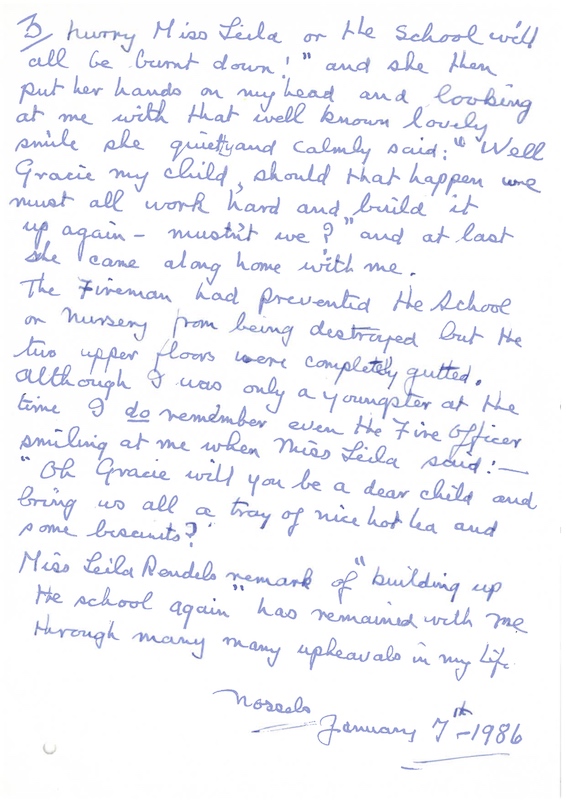 3/ hurry Miss Leila or the School will
all be burnt down!" and she then
put her hands on my head and looking
at me with that well known lovely
smile she quietly and calmly said: "Well
Gracie my child, should that happen we
must all work hard and build it
up again - mustn't we?" and at last
she came along home with me.
The Fireman had prevented the School
or Nursery from being destroyed but the
two upper floors were completely gutted.
Although I was only a youngster at the
time I do remember even the Fire Officer
smiling at me when Miss Leila said:—
"Oh Gracie will you be a dear child and
bring us all a tray of nice hot tea and
some biscuits?"
Miss Leila Rendels remark of "building up
the school again" has remained with me
through many many upheavals in my life.
January 7th - 1986